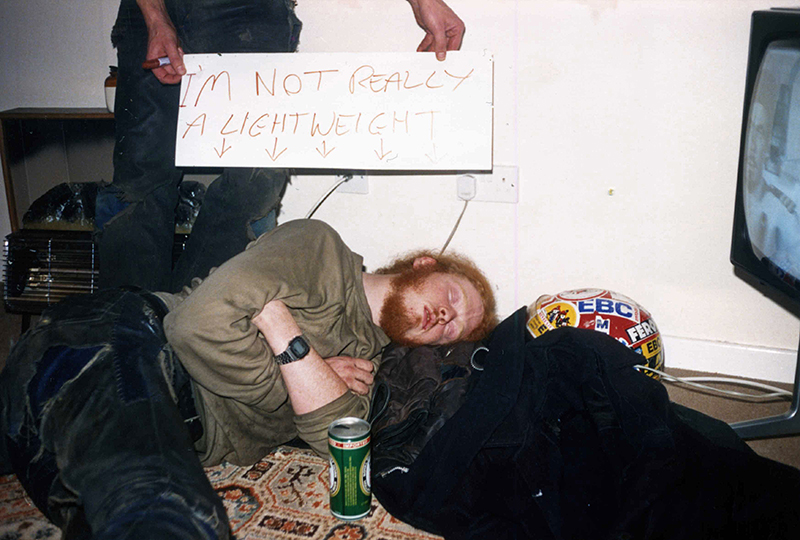 I'M NOT REALLY
A LIGHTWEIGHT
EBC
M
EBC